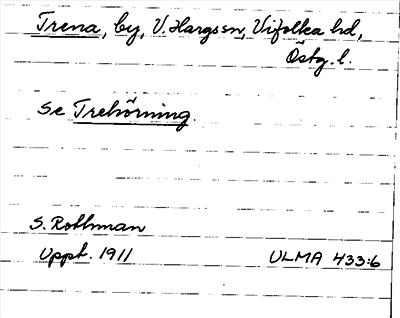 Trena, by, V. Hargs sn, Vifolka hd,
Östg. l.
Se Trehörning.
S. Rothman
Uppt. 1911 ULMA 433:6